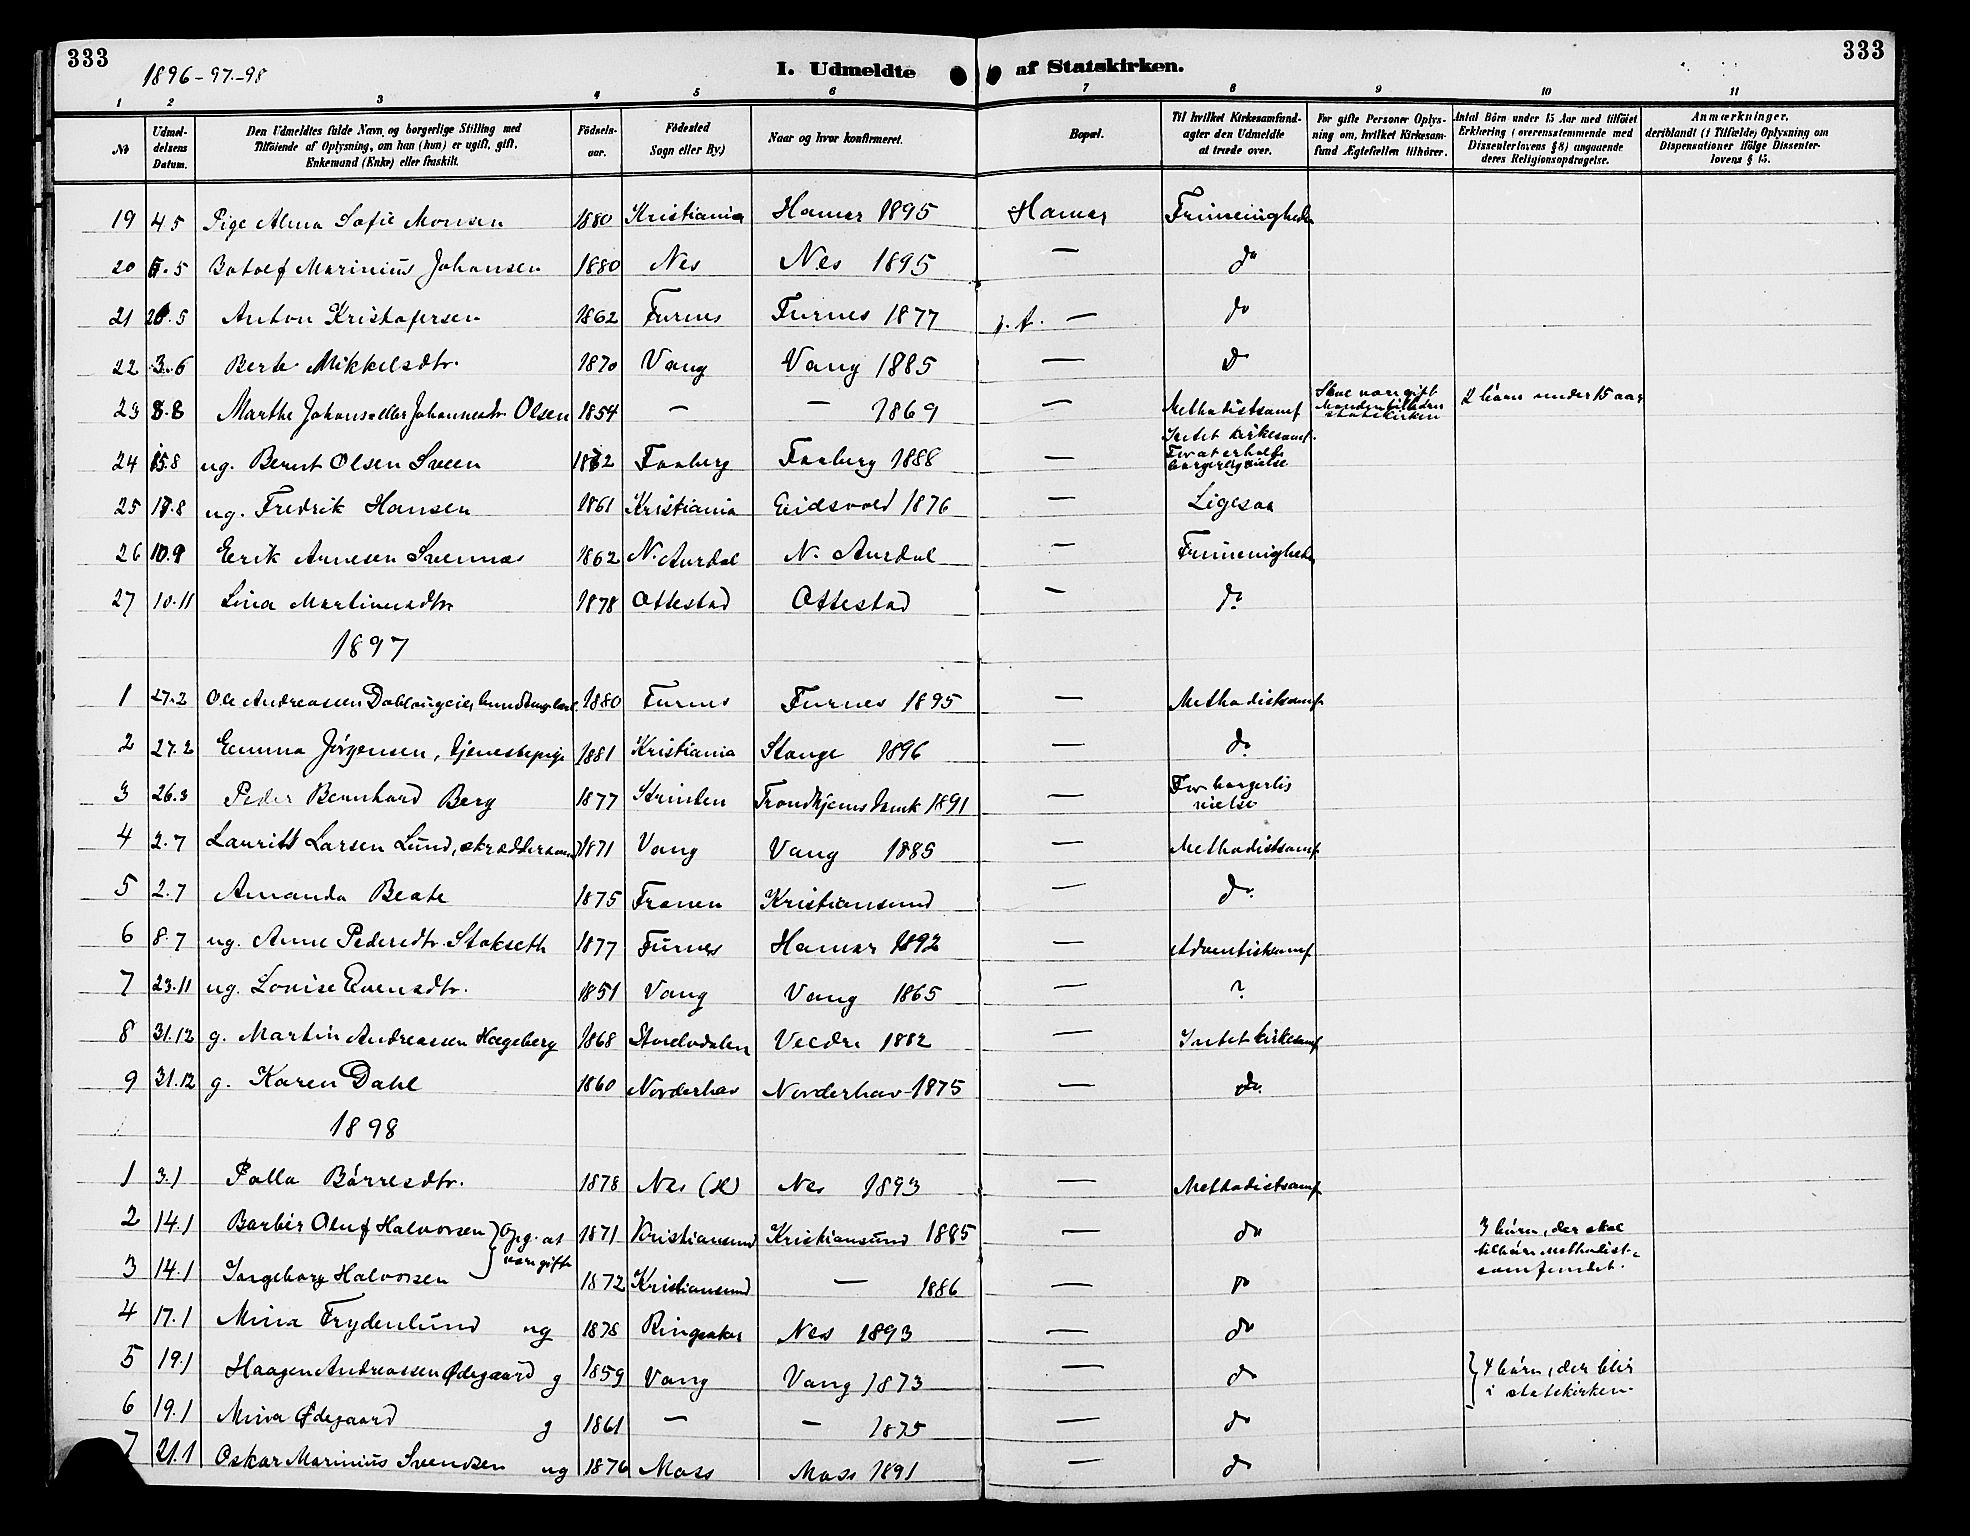 333
333
1896-97.-98
I. Udmeldte af Statskirken.
1 2 3 4 5 6 7 8 9 10 11
No
Udmeldelsens Datum.
Den Udmeldtes fulde Navn og borgerlige Stilling med Tilföiende af Oplysning, om han (hun) er ugift, gift, Enkemand (Enke) eller fraskilt.
Födselsaar.
Födested Sogn eller By.)
Naar og hvor konfirmeret.
Bopæl.
Til hvilket Kirkesamfund agter den Udmeldte at træde over.
For gifte Personer Oplysning om, hvilket Kirkesamfund Ægtefællen tilhörer.
Antal Börn under 15 Aar med tilföiet Erklæring (overensstemmende med Dissenterlovens § 8) angaaende deres Religionsopdragelse.
Anmærkninger, deriblandt (i Tilfælde) Oplysning om Dispensationer ifölge Dissenterlovens § 15.
19 4.5 Pige Alma Sofie Monsen 1880 Kristiania Hamar 1895 Hamar Frimenigheden
20 5.5 Botolf Marinius Johansen 1880 Nes Nes 1895 — do
21 20.5 Anton Kristofersen 1862 Furnes Furnes 1877 p.t. — do
22 3.6 Berte Mikkelsdtr. 1870 Vang Vang 1885 — do
23 8.8 Marthe Johans eller Johannesdtr Olsen 1854 — — 1869 — Methodistsamf Skal være gift Manden tilhører statskirken 2 børn under 15 aar
24 15.8 ug. Bernt Olsen Sveen 1872 Faaberg Faaberg 1888 — Intet kirkesamf. For at erholde borgerlig vielse
25 17.8 ug. Fredrik Hansen 1861 Kristiania Eidsvold 1876 — Ligesaa
26 10.9 Eerik Arnesen Svennes 1862 N. Aurdal N. Aurdal — Frimenigheden
27 10.11 Lina Martinusdtr 1878 Ottestad Ottestad — do
1897
1 27.2 Ole Andreassen 1880 Furnes Furnes 1895 — Methodistsamf
2 27.2 Emma Jørgensen, tjenestepige 1881 Kristiania Stange 1896 — do
3 26.3 Peder Bernhard Berg 1877 Strinden Trondhjems Domk 1891 — For borgerlig vielse
4 2.7 Laurits Larsen Lund, skræddersvend 1871 Vang Vang 1885 — Methodistsamf
5 2.7 Amanda Beate 1875 Frænen Kristiansund — do.
6 8.7 ug. Anne Pedersdtr. Stokseth 1877 Furnes Hamar 1892 — Adventistsamf
7 23.11 ug. Lovise Evensdtr. 1851 Vang Vang 1865 — ?
8 31.12 g. Martin Andreassen Hageberg 1868 Storelvdalen Veldre 1882 — Intet kirkesamf
9 31.12 g. Karen Dahl 1860 Norderhov Norderhov 1875 — do.
1898
1 3.1 Palla Børresdtr. 1878 Nes (H) Nes 1893 — Methodistsamf
2 14.1 Barbér Oluf Halvorsen } Opg. at 1871 Kristiansund Kristiansund 1885 — do 3 børn, der skal tilhøre Methodist-samfundet.
3 14.1 Ingeborg Halvorsen } være gifte 1872 Kristiansund — 1886 — do
4 17.1 Mina Frydenlund ug 1878 Ringsaker Nes 1893 — do
5 19.1 Haagen Andreassen Ødegaard g 1859 Vang Vang 1873 — do } 4 børn, der blir i statskirken.
6 19.1 Mina Ødegaard g 1861 — — 1875 — do
7 21.1 Oskar Marinius Svendsen ug 1876 Moss Moss 1891 — do